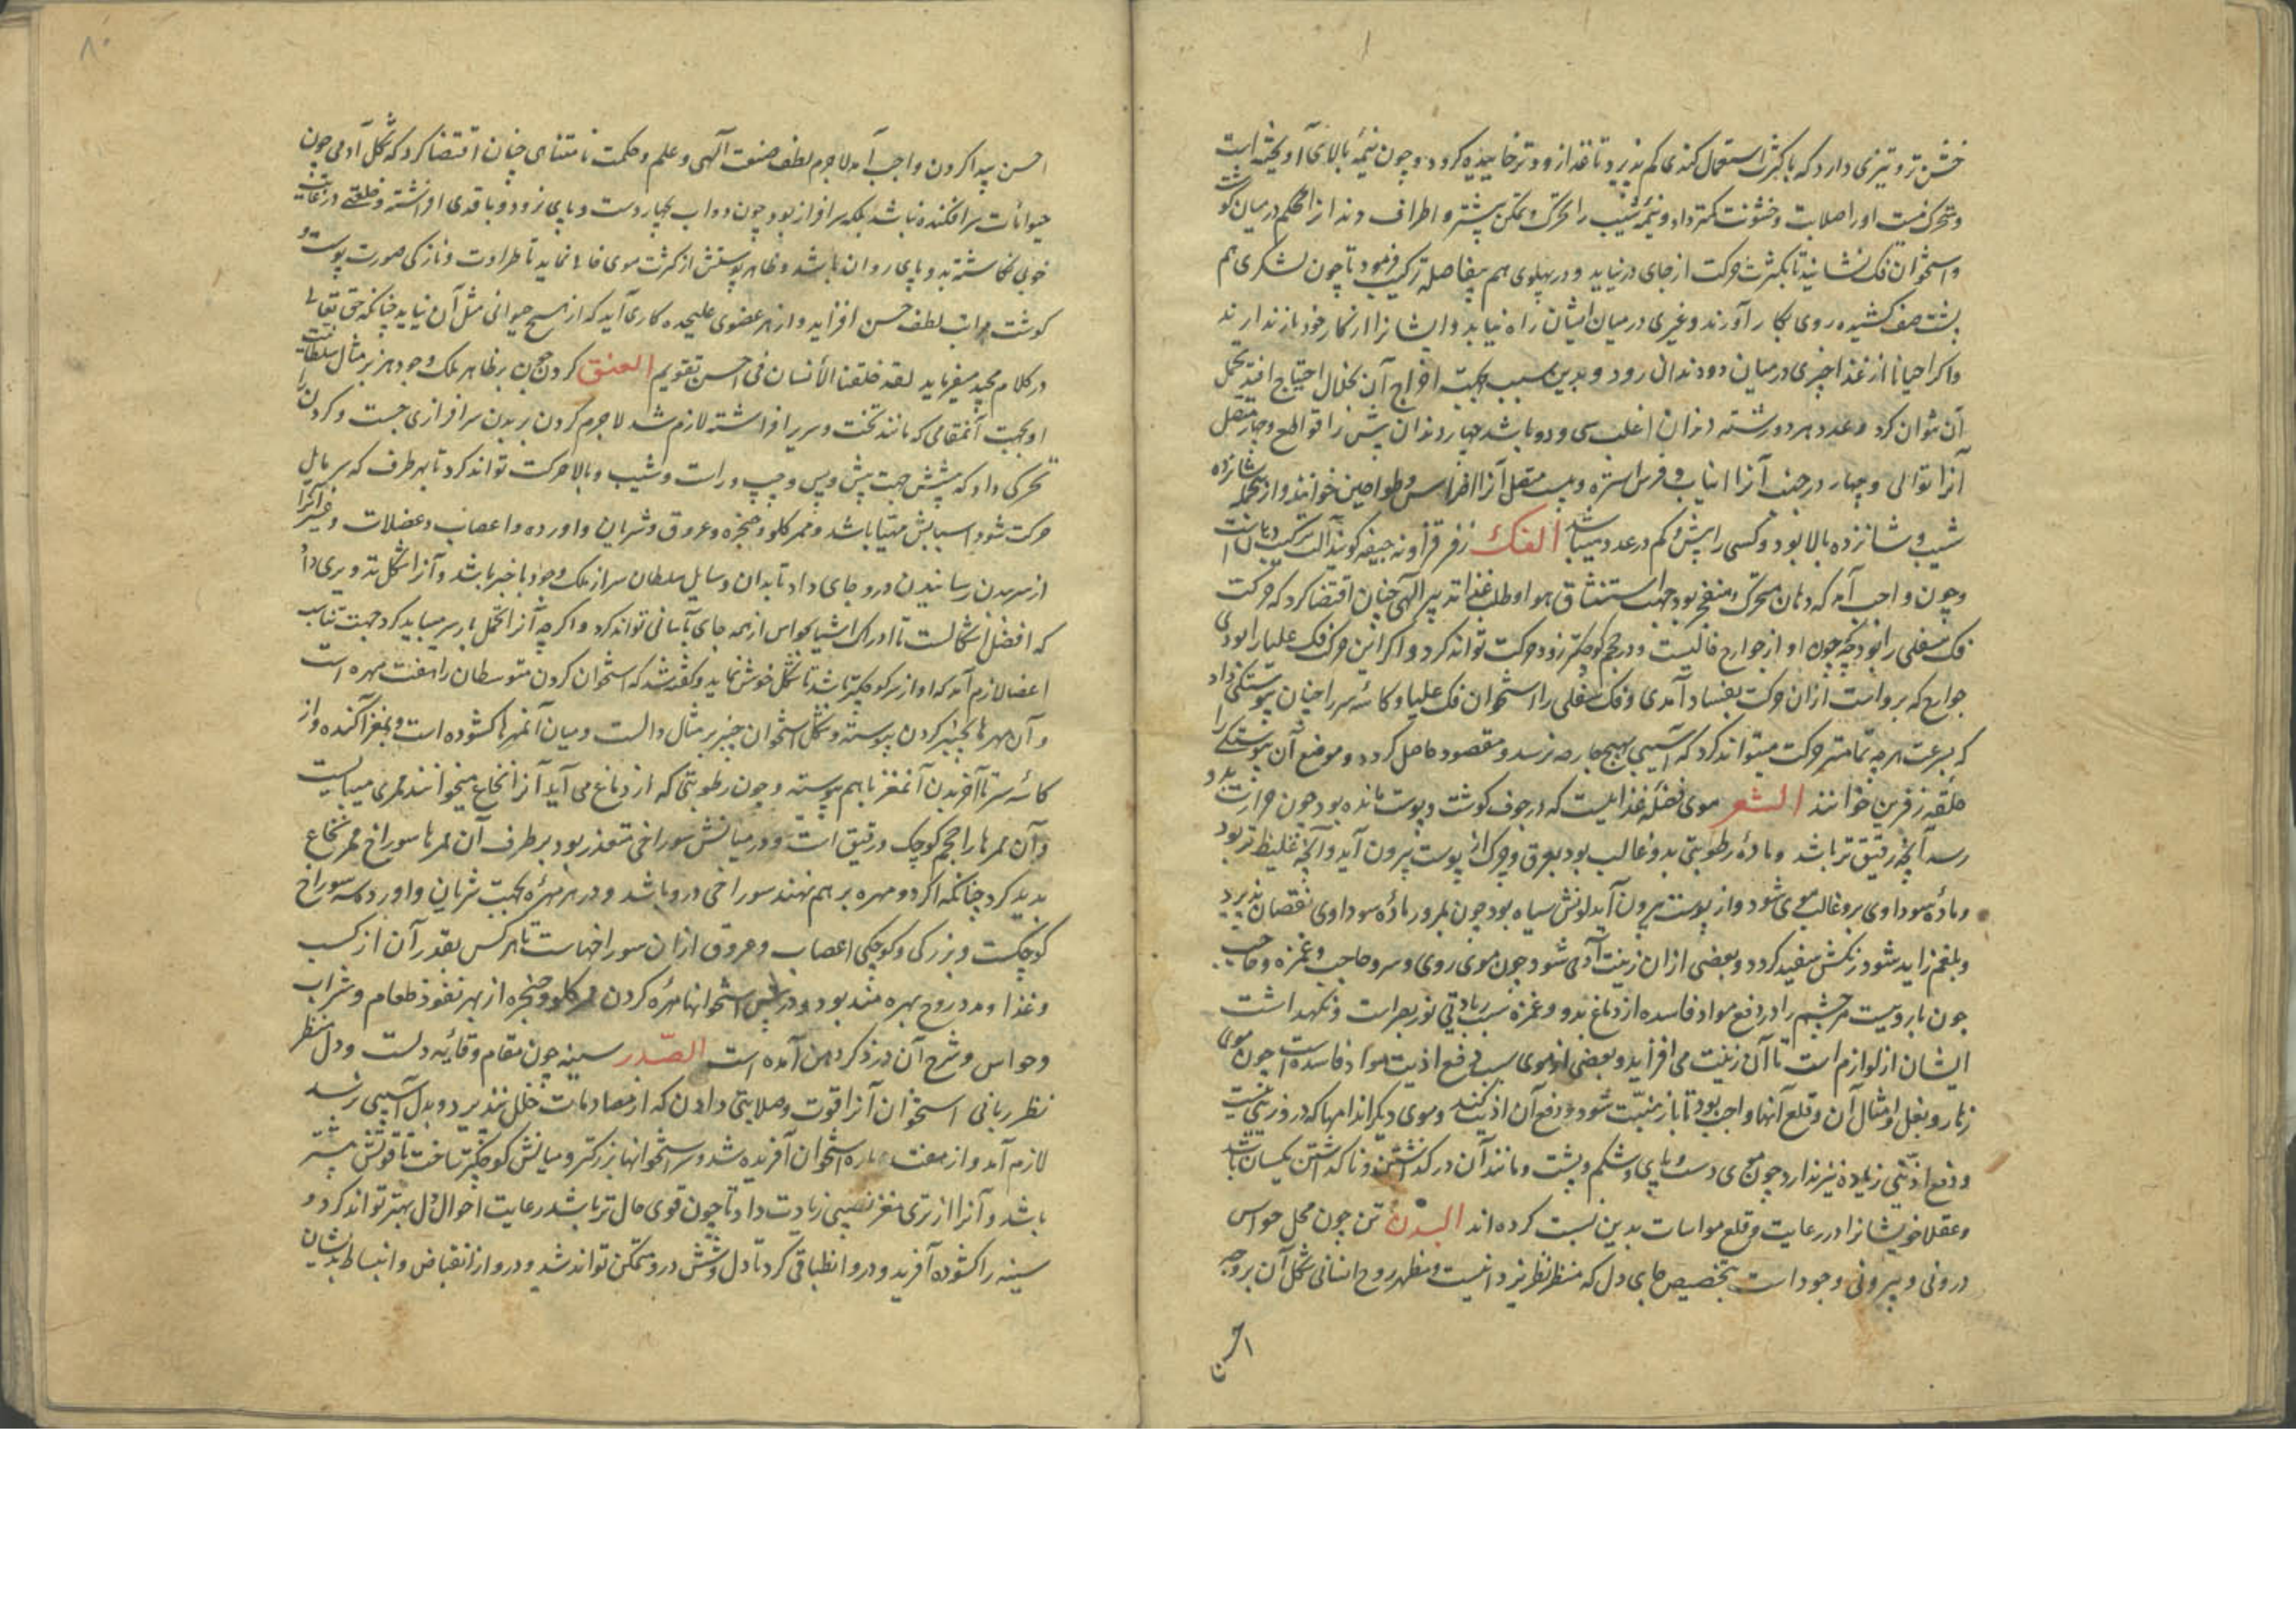 خشن‌تر و تیزی دارد که با کثرت استعمال کندی کم پذیرد تا غذا زودتر خاییده کردد و چون نیمهٔ بالای آویخته است
و متحرک نیست او را صلابت و خشونت کمتر داد و نیمهٔ شیب را تحرک و تمکن بیشتر و اطراف دندانرا محکم در میان کوشت
و استخوان فک نشانید تا بکثرت حرکت از جای در نیاید و در پهلوی هم بیفاصله ترکیب فرمود تا چون لشکری هم
پشت صف کشیده روی بکار آورند و غیری در میان ایشان راه نیابد و ایشانرا از کار خود باز ندارند
و اکر احیانا از غذا چیزی در میان دو دندان رود و بدین سبب بجهت اخراج آن بخلال احتیاج افتد تحمل
آن توان کرد و عدد هر دو رشته دندان اغلب سی و دو باشد چهار دندان پیش را قواطع و چهار متصل
آنرا توالی و چهار در جنب آنرا انیاب و بیست متصل آنرا اضراس و طواحین خوانند و از جمله شانزده
شیب و شانزده بالا بود و کسی را بیش و کم در عدد میباشد الفک زفر قرآونه جیفه کویند آلت ترکیب دهانست
و چون واجب آمد که دهان متحرک و منفتح بود جهت استنشاق هوا و طلب غذا تدبیر الهی چنان اقتضا کرد که حرکت
فک سفلی را بود چه چون او از جوارح خالیست و در حجم کوچکتر زود حرکت تواند کرد و اکر این حرکت فک علیا را بودی
جوارح که بر و است از آن حرکت بفساد آمدی و فک سفلی را استخوان فک علیا و کاسهٔ سر را چنان پیوستکی داد
که بسرعت هر چه تمامتر حرکت میتواند کرد که آسیبی بهیچ جارحه نرسد و مقصود حاصل کردد و موضع آن پیوستکی را
حلقه زفرین خوانند الشعر موی فضلهٔ غذاییست که در جوف کوشت و پوست مانده بود چون حرارت بدو
رسد آنچه رقیق‌تر باشد و مادهٔ رطوبتی بدو غالب بود بعرق و چرک از پوست بیرون آید و آنچه غلیظ‌تر بود
و مادهٔ سوداوی برو غالب موی شود و از پوست بیرون آید لونش سیاه بود چون بمرور مادهٔ سوداوی نقصان پذیرد
و بلغم زاید شود رنکش سفید کردد و بعضی از آن زینت آدمی شود چون موی روی و سر و حاجب و غمزه و حاجب
چون بارویست مر چشم را در دفع مواد فاسده از دماغ بدو و غمزه سبب زیادتی نور بصر است و نکهداشت
ایشان از لوازم است تا آن زینت می‌افزاید و بعضی از موی سبب دفع اذیت مواد فاسده است چون موی
زهار و بغل و امثال آن و قلع آنها واجب بود تا باز منبت شود و دفع آن اذیت کند و موی دیکر اندامها که درو زینتی نیست
و دفع اذیتی زیاده نیز ندارد چون موی دست و پای و شکم و پشت و مانند آن در کذاشتن و ناکذاشتن یکسان باشد
و عقلا خویشانرا در رعایت و قلع مواسات بدین نسبت کرده‌اند البدن تن چون محل حواس
درونی و بیرونی وجود است بتخصیص جای دل که منظر نظر یزدانیست و مظهر روح انسانی شکل آن بر وجه
احسن
۸۰
احسن پیدا کردن واجب آمد لاجرم لطف صنعت الهی و علم و حکمت نامتناهی چنان اقتضا کرد که شکل آدمی چون
حیوانات سرافکنده نباشد بلکه سرافراز بود و چون دواب بچهار دست و پای نرود و با قدی افراشته و خلقتی در غایت
خوبی نکاشته بدو پای روان باشد و ظاهر پوستش از کثرت موی خالی نماید تا طراوت و نازکی صورت پوست و
کوشت مراتب لطف حسن افزاید و از هر عضوی علیحده کاری آید که از هیچ حیوانی مثل آن نیاید چنانکه حق تعالی
در کلام مجید میفرماید لقد خلقنا الأنسان فی احسن تقویم العنق کردن چون بر ظاهر ملک وجود هنر بر مثال سلطانست
او بجهت آنمقامی که مانند تخت و سریر افراشته لازم شد لاجرم کردن بر بدن سرافرازی جست و کردن را
تحرکی داد که بشش جهت پیش و پس و چپ و راست و شیب و بالا حرکت تواند کرد تا بهر طرف که سر مایل
حرکت شود اسبابش مهیا باشد و ممر کلو و حنجره و عروق و شریان و اورده و اعصاب و عضلات و غیر آنرا
از سر ببدن رسانیدن درو جای داد تا بدان وسایل سلطان سر از ملک وجود با خبر باشد و آنرا شکل تدویری داد
که افضل اشکالست تا ادراک اشیا بحواس از همه جای بآسانی تواند کرد و اکر چه آنرا تحمل بار سر میباید کرد جهت تناسب
اعضا لازم آمد که او از سر کوچکتر باشد تا شکل خوش نماید و کفته شد که استخوان کردن متوسطان را هفت مهره است
و آن مهرها بچنبر کردن پیوسته و شکل استخوان چنبر بر مثال دالست و میان آنمهرها کشوده است و بمغز آکنده و از
کاسهٔ سر تا آخر بدن آنمغز با هم پیوسته و چون رطوبتی که از دماغ می‌آید آنرا نخاع میخوانند ممری میبایست
و آن ممرها را حجم کوچک و رقیق است و در میانش سوراخی متعذر بود بر طرف آن ممرها سوراخ ممر نخاع
پدید کرد چنانکه اکر دو مهره بر هم نهند سوراخی درو باشد و در هر مهره بجهت شریان و اورده سوراخ
کوچکست و بزرکی و کوچکی اعصاب و عروق از آن سوراخهاست تا هر کس بقدر آن از کسب
و غذا و مدد روح بهره مند بود و در پس استخوانها مهرهٔ کردن ممر کلو و حنجره از بهر نفوذ طعام و شراب
و حواس و شرح آن در ذکر دهن آمده است الصّدر سینه چون مقام وقایهٔ دلست و دل منظر
نظر ربانی استخوان آنرا قوت و صلابتی دادن که از مصادمات خلل نپذیرد و بدل آسیبی نرسد
لازم آمد و از هفت پاره استخوان آفریده شد و سر استخوانها بزرکتر و میانش کوچکتر ساخت تا قوتش بیشتر
باشد و آنرا از تری مغز نصیبی زیادت داد تا چون قوی حال‌تر باشد رعایت احوال دل بهتر تواند کرد و
سینه را کشوده آفرید و درو انطباقی کرد تا دل و شش درو متمکن تواند شد و درو از انقباض و انبساط بدیشان